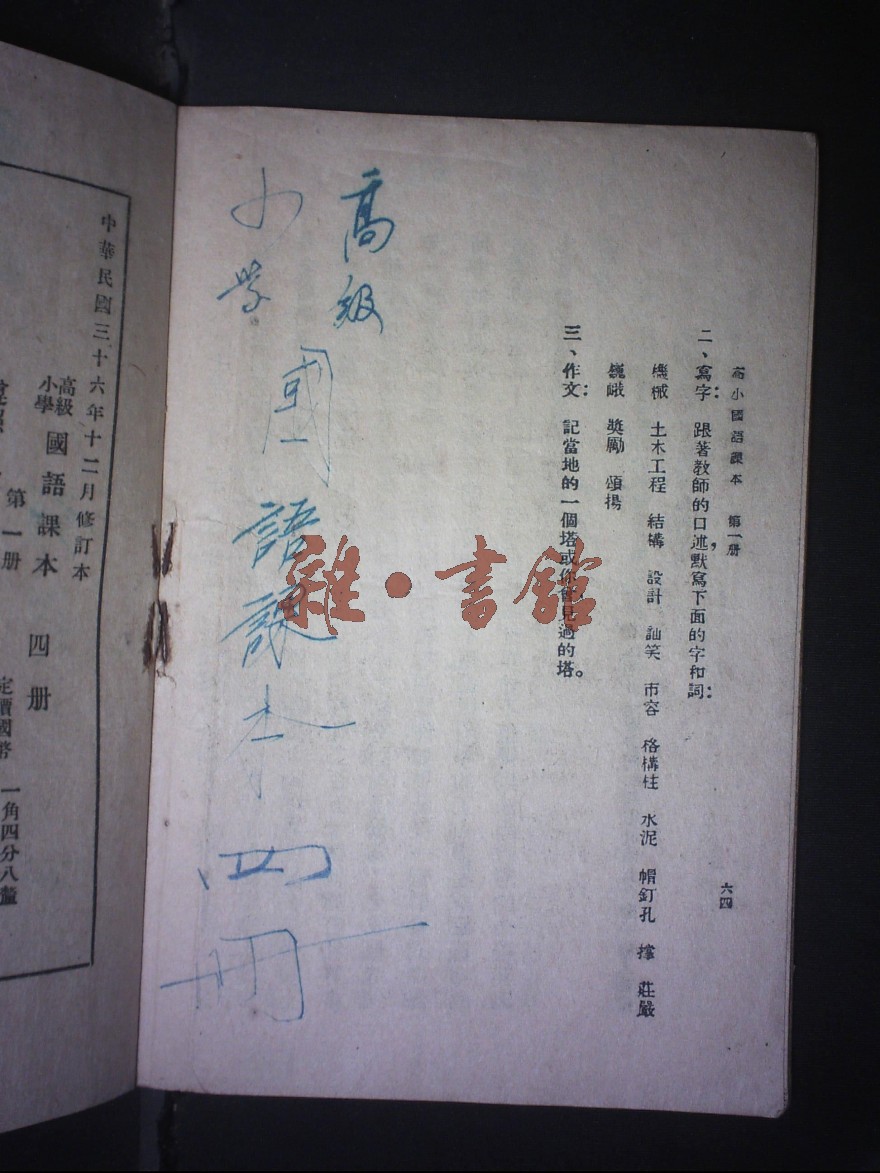 高小國語課本 第一册
六四
二、寫字：跟著教師的口述，默寫下面的字和詞：
機械 土木工程 結構 設計 訕笑 市容 格構柱 水泥 帽釘孔 撐 莊嚴
巍峨 獎勵 頌揚
三、作文：記當地的一個塔或你所見過的塔。
高級
小学
國語課本四冊
雜·書館
中華民國三十六年十二月修訂本
高級
小學
國語課本 四册
第一册
定價國幣 一角四分八釐